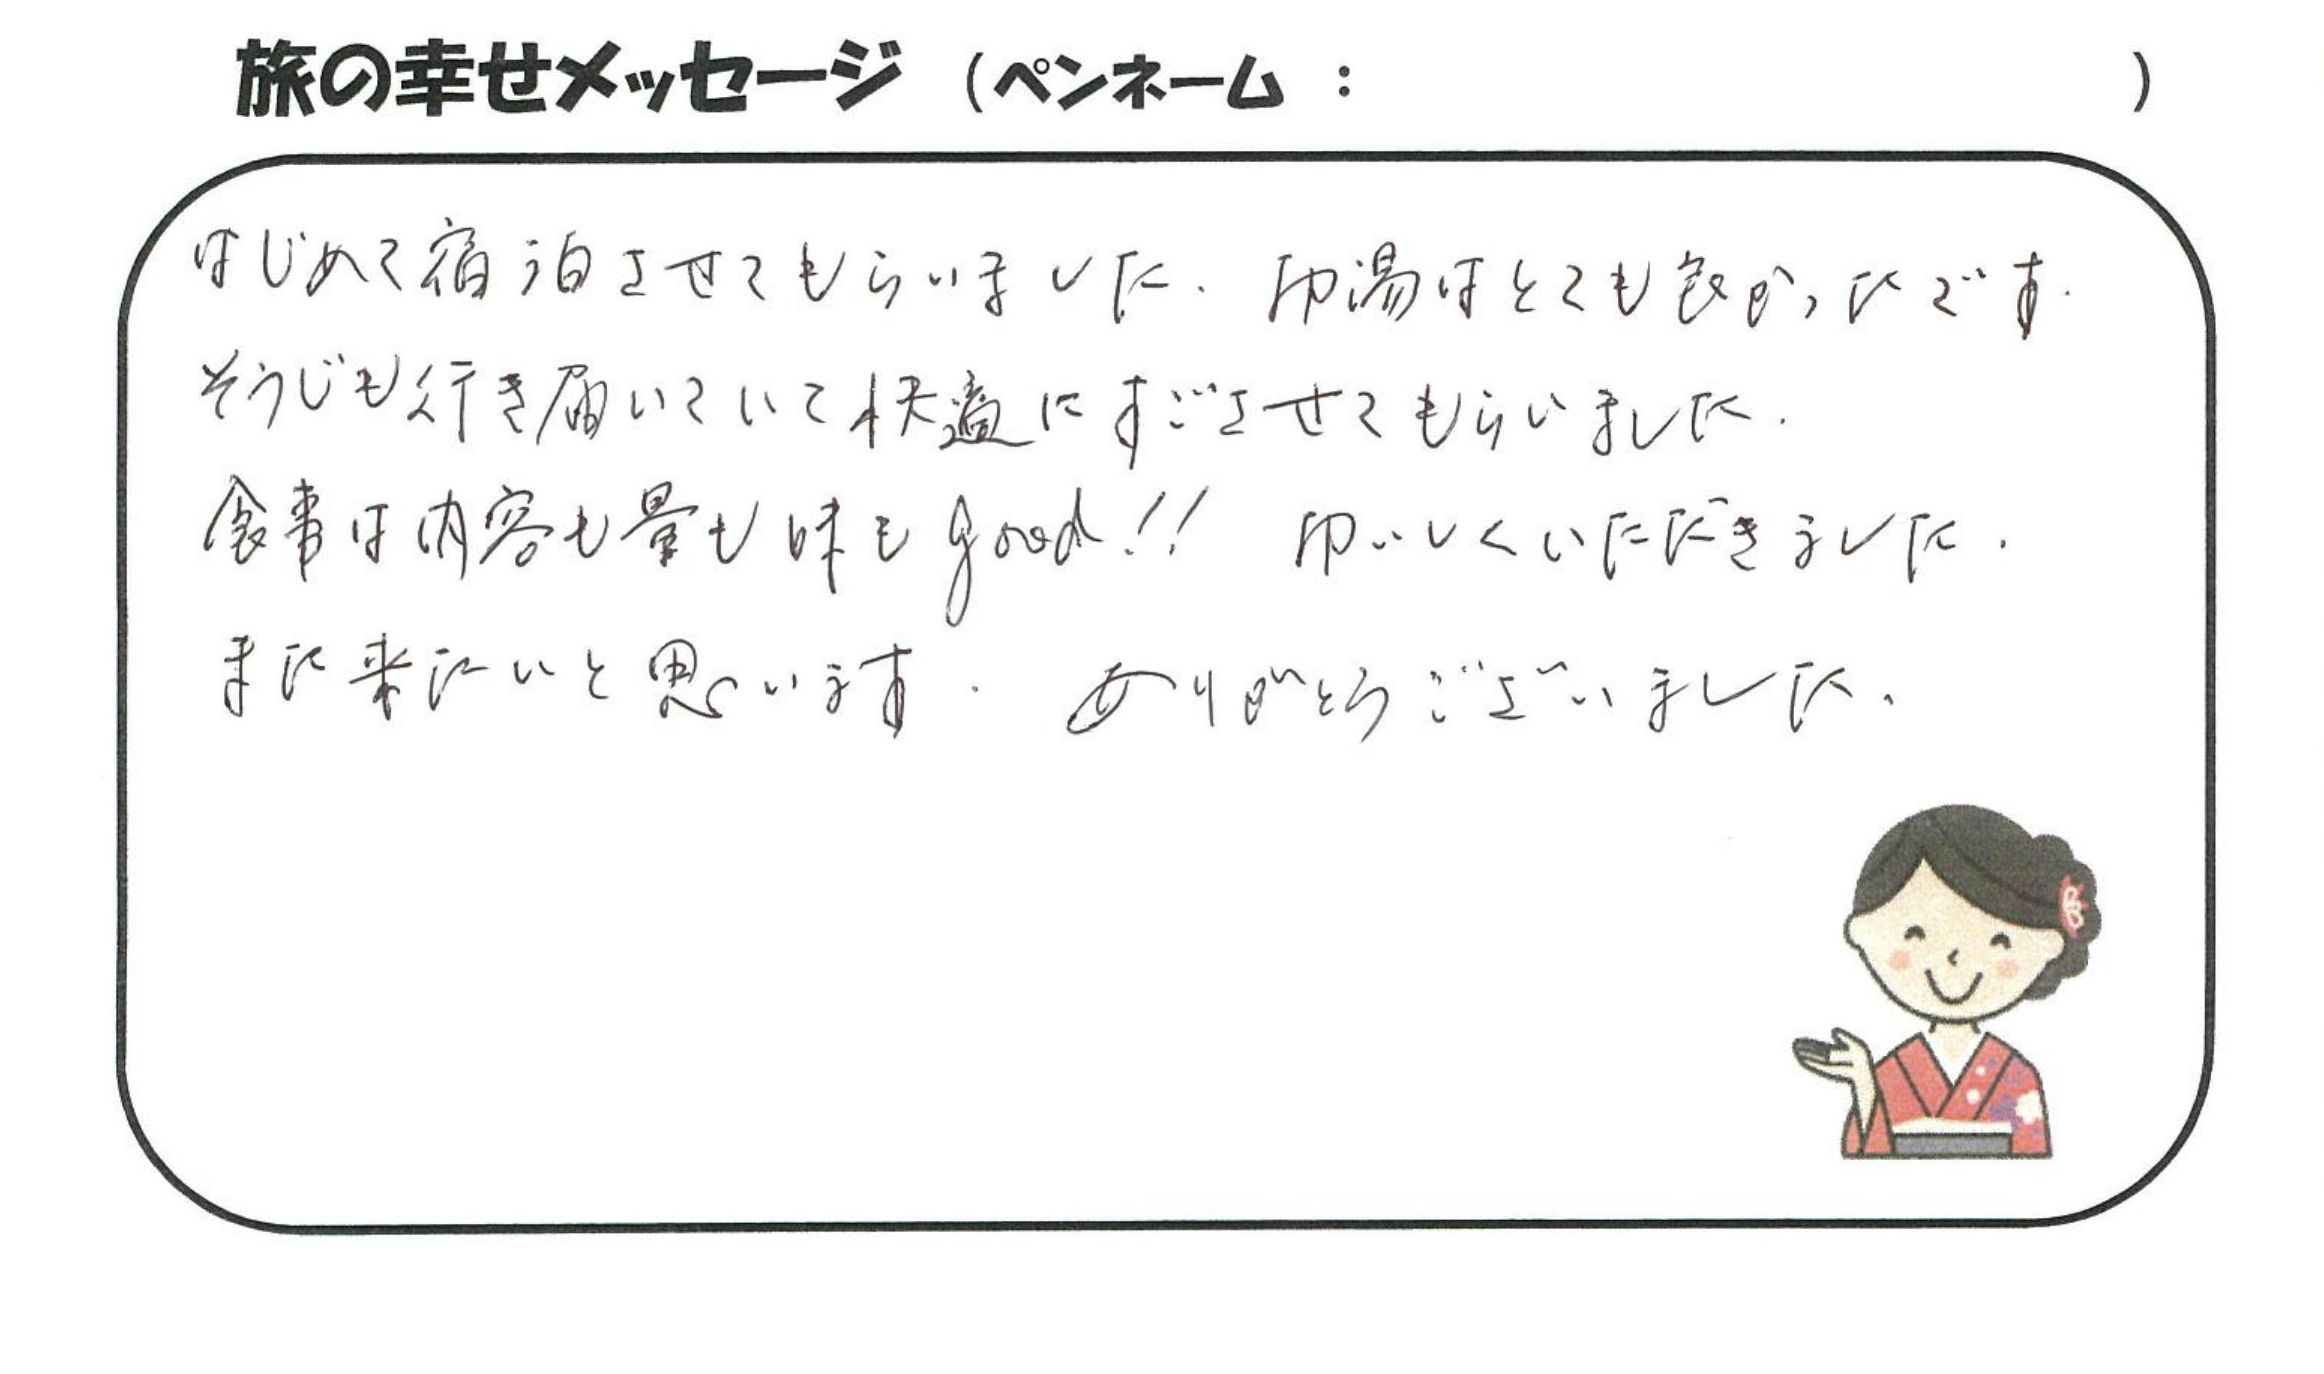 旅の幸せメッセージ （ペンネーム ： ）
はじめて宿泊させてもらいました. お湯はとても良かったです.
そうじも行き届いていて快適にすごさせてもらいました.
食事は内容も量も味もgood!! おいしくいただきました.
また来たいと思います. ありがとうございました.